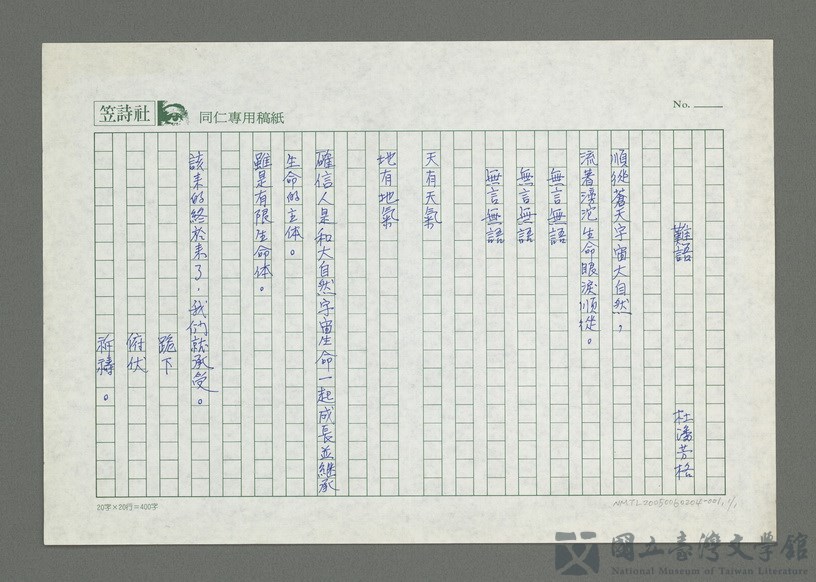 笠詩社
同仁專用稿紙
No.
難語
杜潘芳格
順從蒼天宇宙大自然，
流着滂沱生命眼淚順從。
無言無語
無言無語
無言無語
天有天氣
地有地氣
確信人是和大自然宇宙生命一起成長並継承
生命的主体。
雖是有限生命体。
該來的終於來了，我們就承受。
跪下
俯伏
祈禱。
20字×20行=400字
NMTL20050060204-001, 1/1
國立臺灣文學館
National Museum of Taiwan Literature